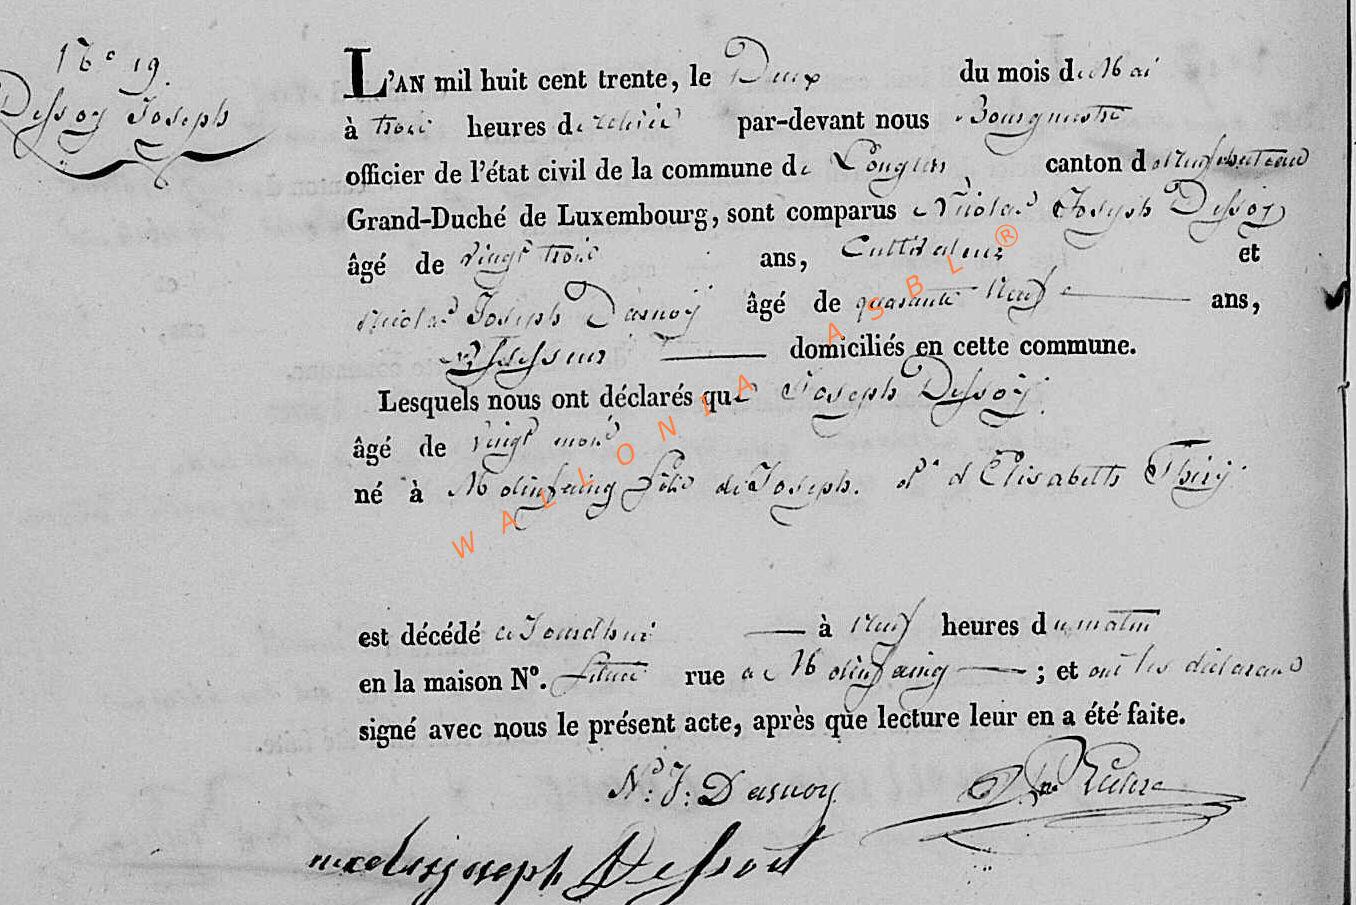 N° 19.
Dessoy Joseph
L'AN mil huit cent trente, le Deux du mois de Mai
à trois heures de relevée par-devant nous Bourgmestre
officier de l'état civil de la commune de Longlier, canton de Neufchateau
Grand-Duché de Luxembourg, sont comparus Nicolas Joseph Dessoy
âgé de vingt trois ans, Cultivateur et
Nicolas Joseph Dasnoy âgé de quarante Neuf ans,
Assesseur domiciliés en cette commune.
Lesquels nous ont déclarés que Joseph Dessoy
âgé de vingt mois
né à Molinfaing fils de Joseph et d'Elisabeth Thiry
est décédé ce Jourdhui à Neuf heures du matin
en la maison N°. située rue à Molinfaing ; et ont les déclarans
signé avec nous le présent acte, après que lecture leur en a été faite.
N. J: Dasnoy
nicolas joseph Dessoit
WALLONIA ASBL ®